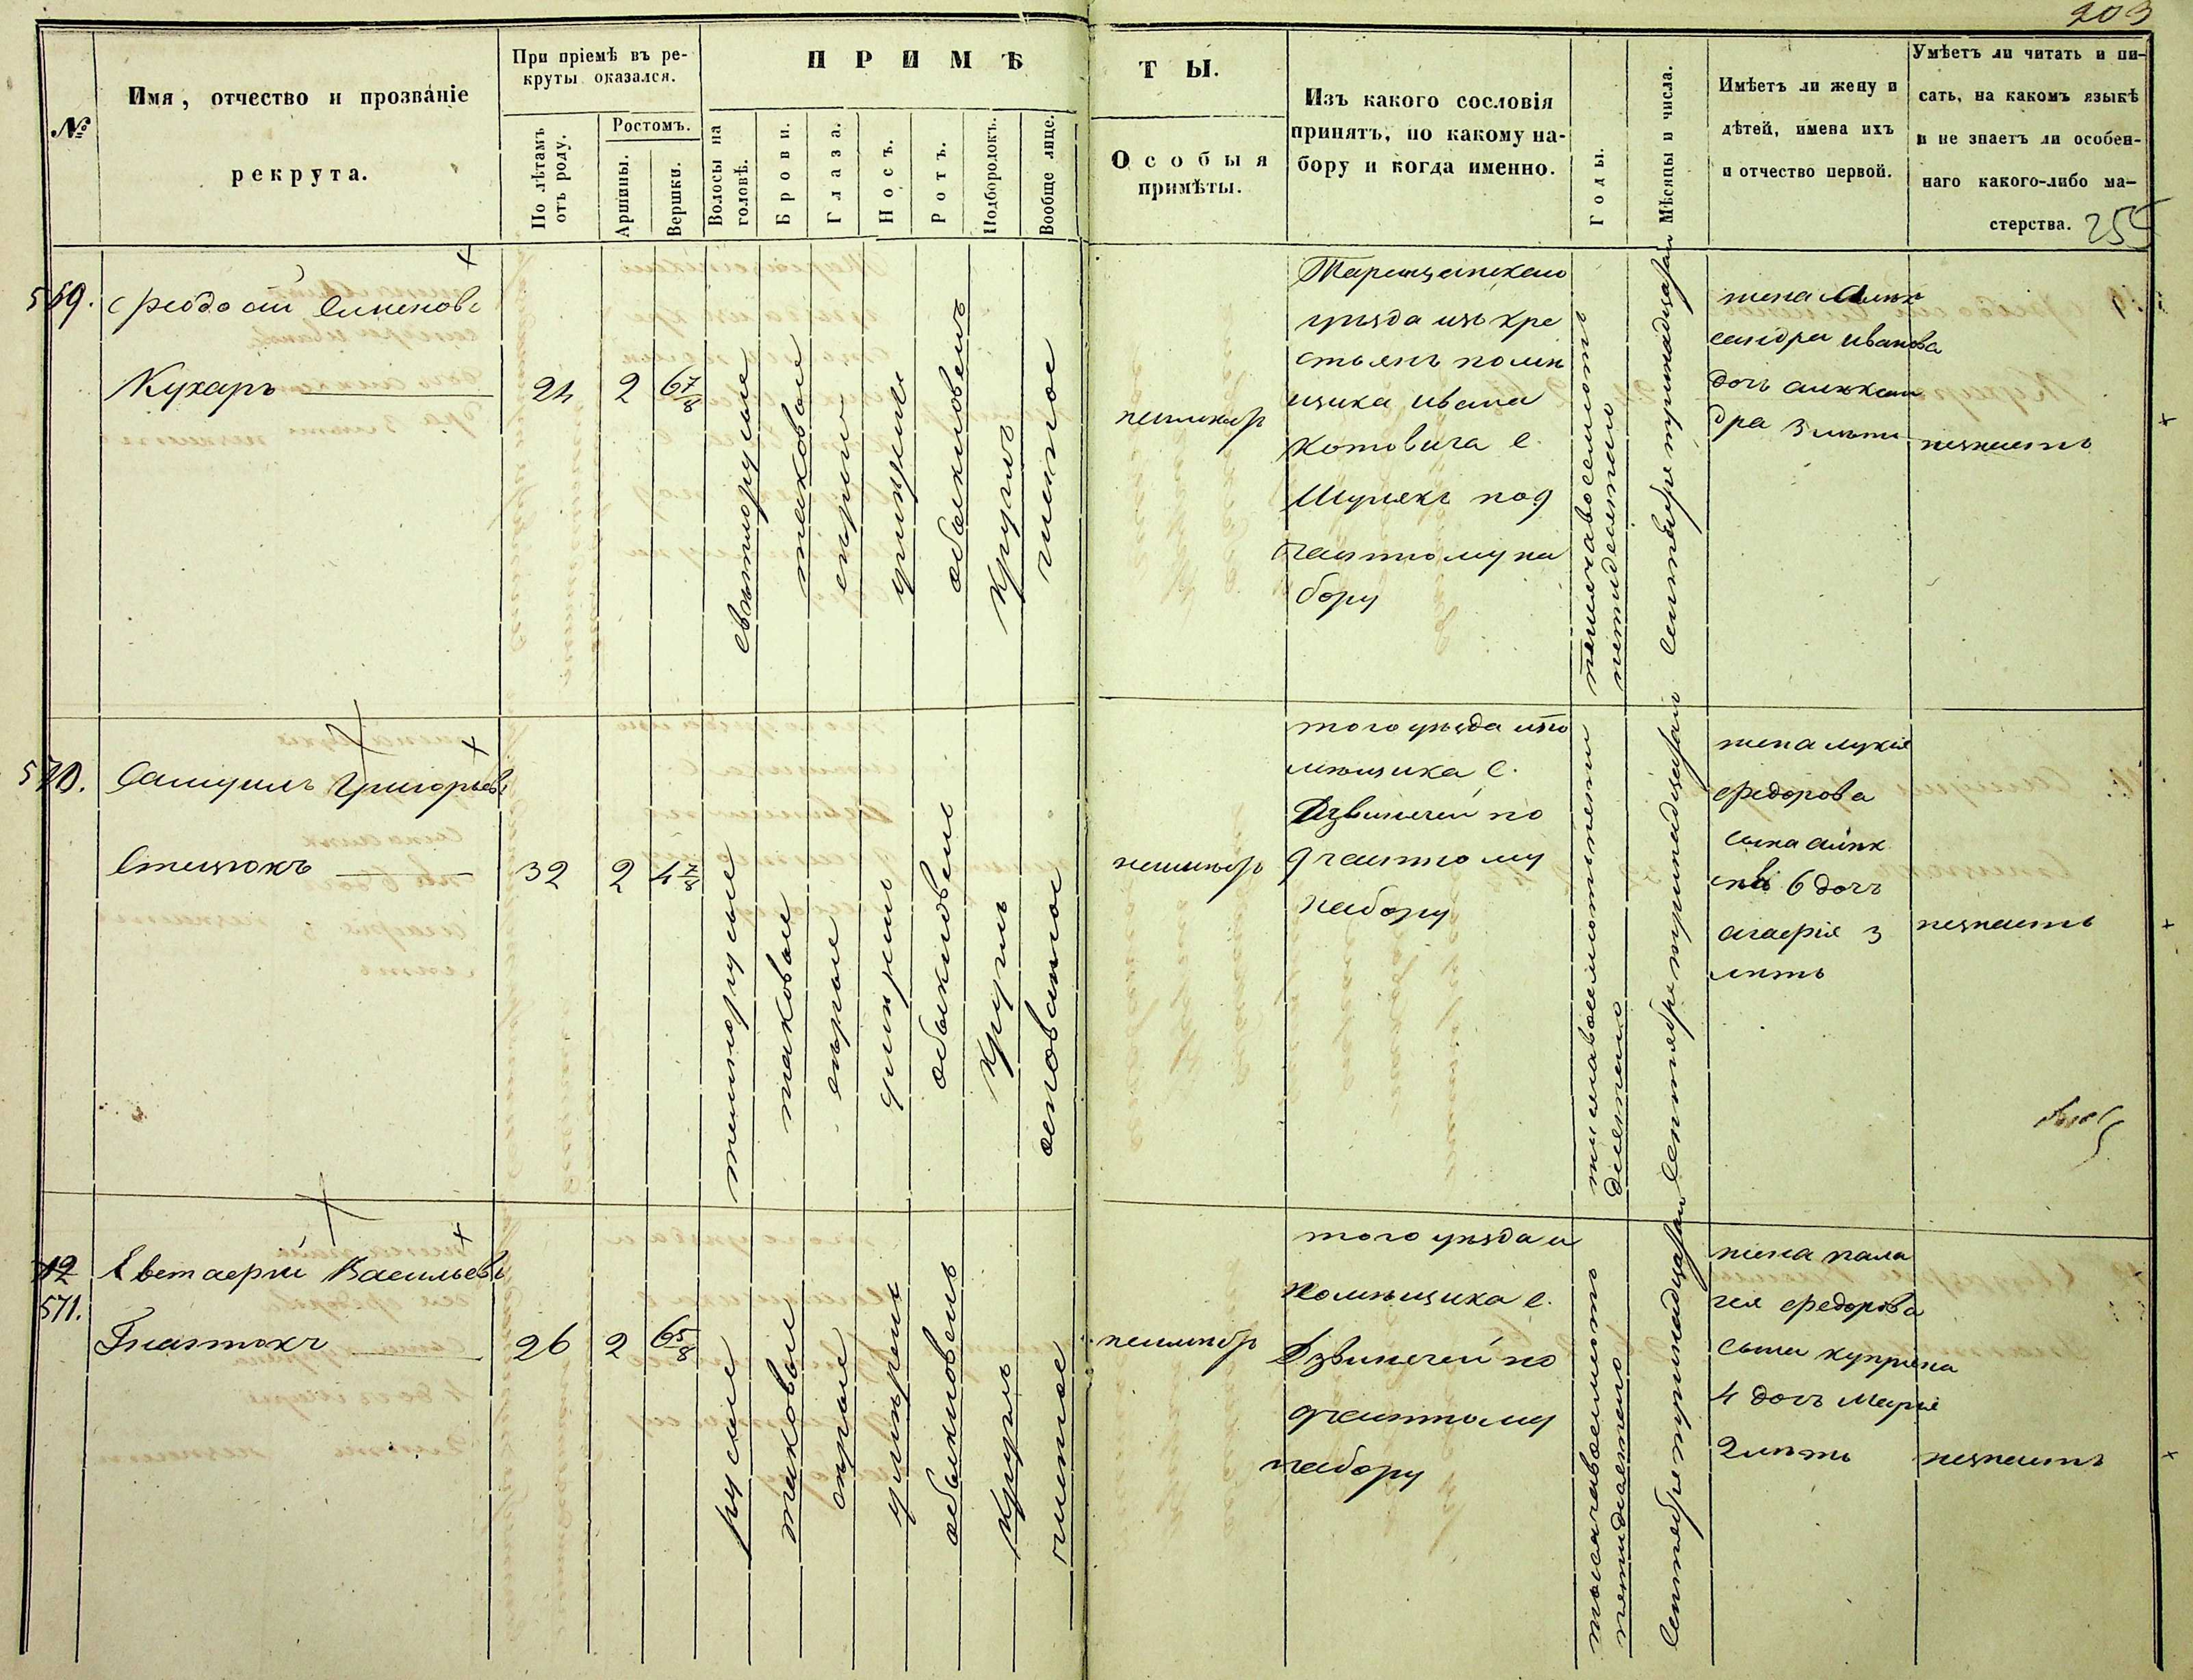 203
№
Имя, отчество и прозваніе
рекрута.
При пріемѣ въ ре-
круты оказался.
По лѣтамъ
отъ роду.
Ростомъ.
Аршины.
Вершки.
ПРИМѢ
ТЫ.
Волосы на
головѣ.
Брови.
Глаза.
Носъ.
Ротъ.
Подбородокъ.
Вообще лице.
Особыя
примѣты.
Изъ какого сословія
принятъ, по какому на-
бору и когда именно.
Годы.
Мѣсяцы и числа.
Имѣетъ ли жену и
дѣтей, имена ихъ
и отчество первой.
Умѣетъ ли читать и пи-
сать, на какомъ языкѣ
и не знаетъ ли особен-
наго какого-либо ма-
стерства.
255
569.
Феодосій Семеновъ
Кухаръ
24
2
6 7/8
свѣтлорусые
таковые
сѣрые
обыкновенъ
круглъ
чистое
неимѣетъ
Таращанскаго
уѣзда изъ кре
стьянъ помѣ
щика Ивана
Котовича с.
Шулякъ по 9
частному на
бору
тысяча восемсотъ
пятидесятаго
Сентября тринадцатаго
жена Алек
сандра Иванова
дочь Алексан
дра 3 лѣтъ
незнаетъ
570.
Самуилъ Григорьевъ
Стецюкъ
32
2
4 7/8
темнорусые
таковые
сѣрые
обыкновенъ
круглъ
осповатое
неимѣетъ
того уѣзда изъ по
мѣщика с.
Дзвинячей по
9 частному
набору
Сентября тринадцатаго
жена Лукія
Федорова
сына Алек
сѣя 6 дочь
Агафія 3
лѣтъ
незнаетъ
12
571.
Евстафій Васильевъ
Гнатюкъ
26
2
6 5/8
русые
таковые
сѣрые
обыкновенъ
круглъ
чистое
неимѣетъ
того уѣзда и
помѣщика с.
Дзвинячей по
9 частному
набору
тысяча восемсотъ
пятидесятаго
Сентября тринадцатаго
жена Пала
гея Федорова
сына Купріяна
4 дочь Марія
2 лѣтъ
незнаетъ